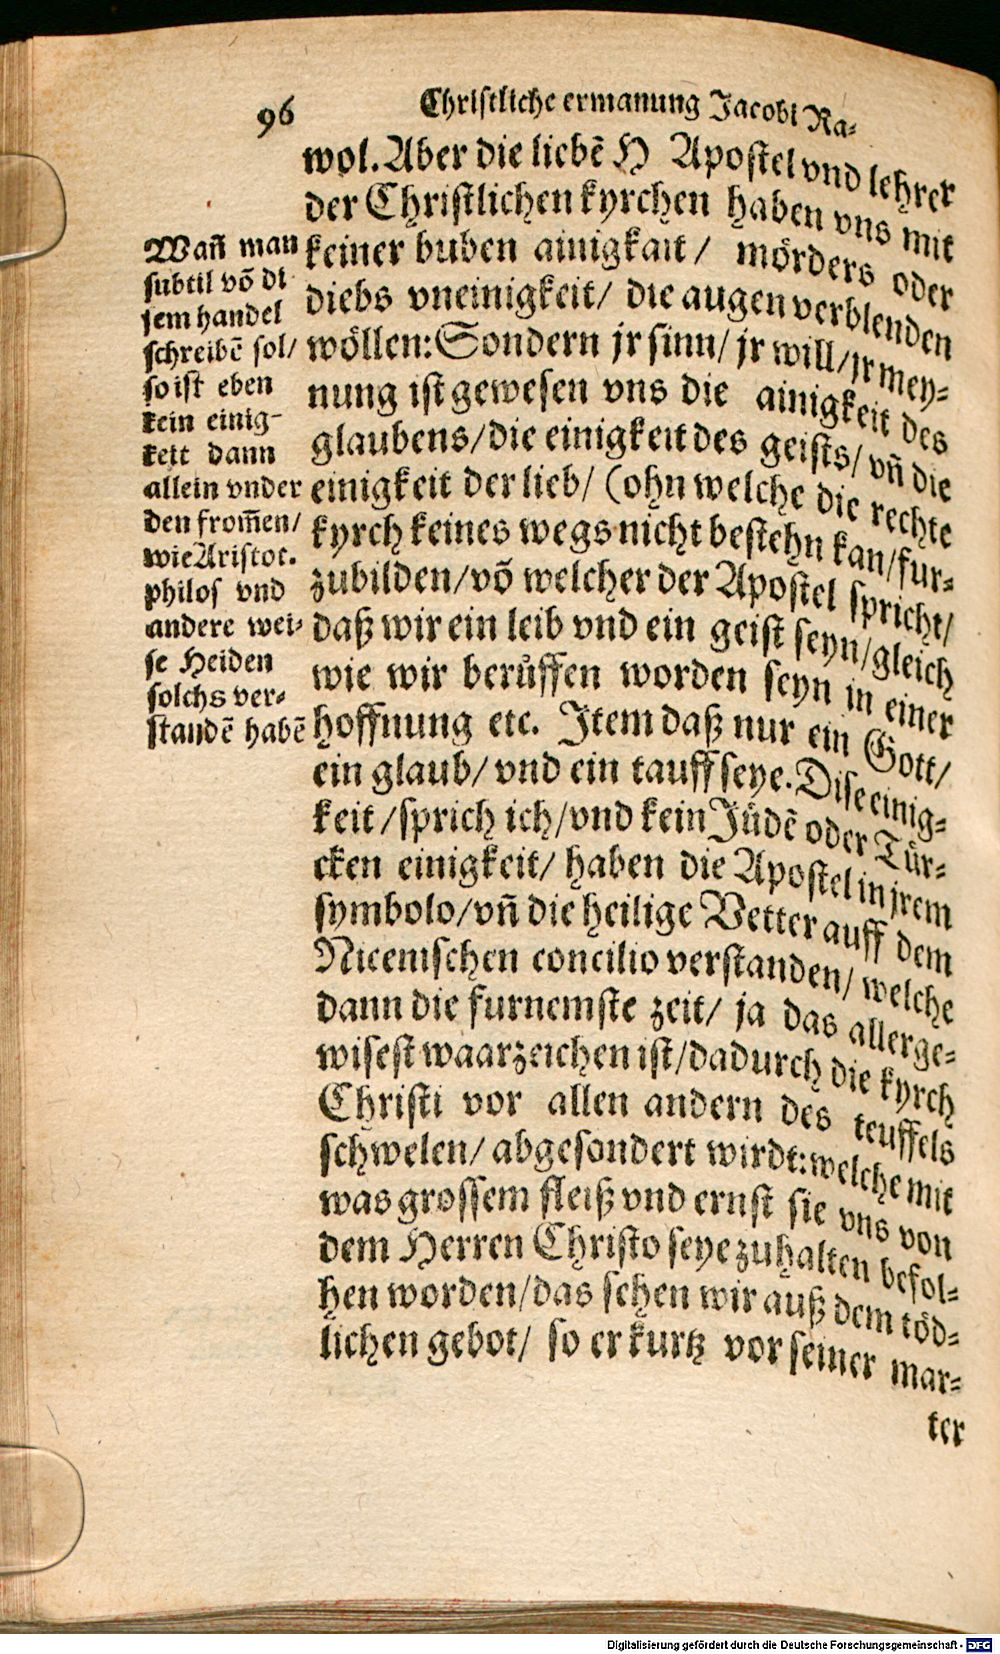 96
Christliche ermanung Jacobi Ra-
wol. Aber die liebē H Apostel vnd lehrer
der Christlichen kyrchen haben vns mit
keiner buben ainigkait / mörders oder
diebs vneinigkeit / die augen verblenden
wöllen: Sondern jr sinn / jr will / jr mey-
nung ist gewesen vns die ainigkeit des
glaubens / die einigkeit des geists / vñ die
einigkeit der lieb / (ohn welche die rechte
kyrch keines wegs nicht bestehn kan / fur-
zubilden / vō welcher der Apostel spricht /
daß wir ein leib vnd ein geist seyn / gleich
wie wir berůffen worden seyn in einer
hoffnung etc. Item daß nur ein Gott /
ein glaub / vnd ein tauff seye. Dise einig-
keit / sprich ich / vnd kein Jüdē oder Tür-
cken einigkeit / haben die Apostel in jrem
symbolo / vñ die heilige Vetter auff dem
Nicenischen concilio verstanden / welche
dann die furnemste zeit / ja das allerge-
wisest waarzeichen ist / dadurch die kyrch
Christi vor allen andern des teuffels
schwelen / abgesondert wirdt: welche mit
was grossem fleiß vnd ernst sie vns von
dem Herren Christo seye zuhalten befol-
hen worden / das sehen wir auß dem töd-
lichen gebot / so er kurtz vor seiner mar-
ter
Wañ man
subtil vō di
sem handel
schreibē sol /
so ist eben
kein einig-
keit dann
allein vnder
den from̄en /
wie Aristot.
philos vnd
andere wei-
se Heiden
solchs ver-
standē habē
Digitalisierung gefördert durch die Deutsche Forschungsgemeinschaft - DFG